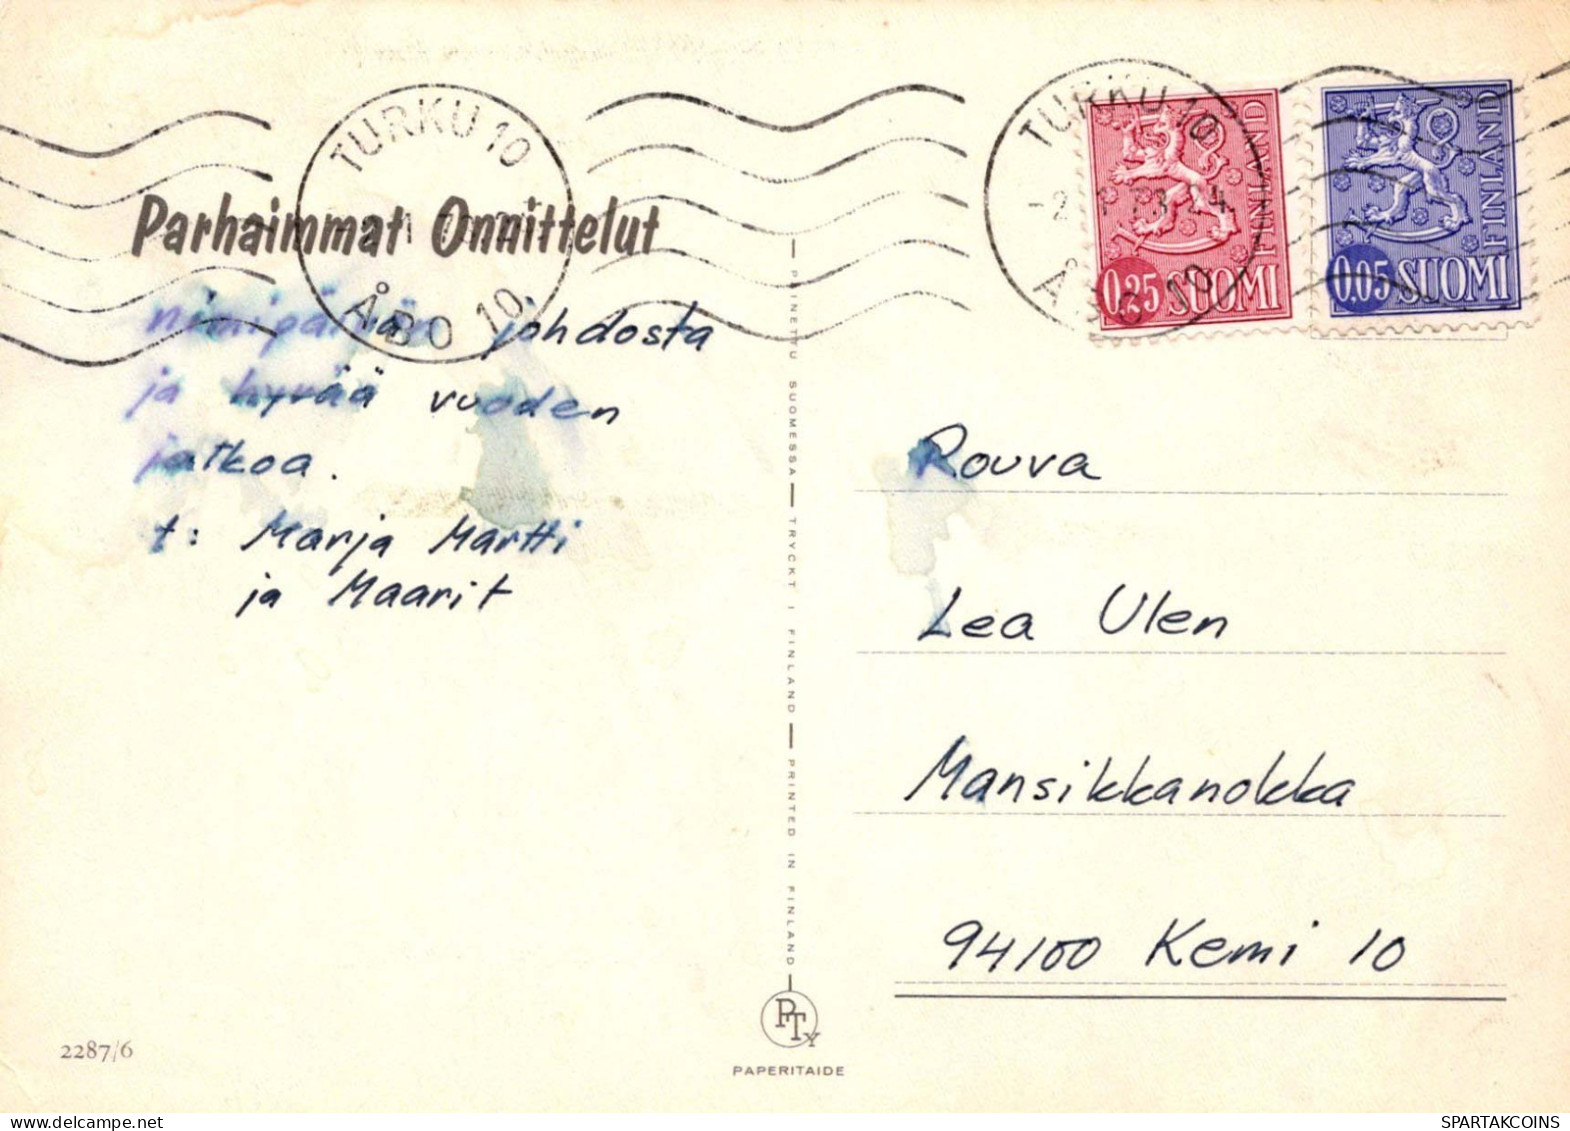 TURKU 10
ÅBO 10
TURKU 10
-2.1.73.24
ÅBO 10
0,25 SUOMI
FINLAND
0,05 SUOMI
FINLAND
Parhaimmat Onnittelut
nimipäivän johdosta
ja hyvää vuoden
jatkoa.
t: Marja Martti
ja Maarit
PAINETTU SUOMESSA — TRYCKT I FINLAND — PRINTED IN FINLAND
Rouva
Lea Ulen
Mansikkanokka
94100 Kemi 10
PTy
PAPERITAIDE
2287/6
delcampe.net
SPARTAKCOINS